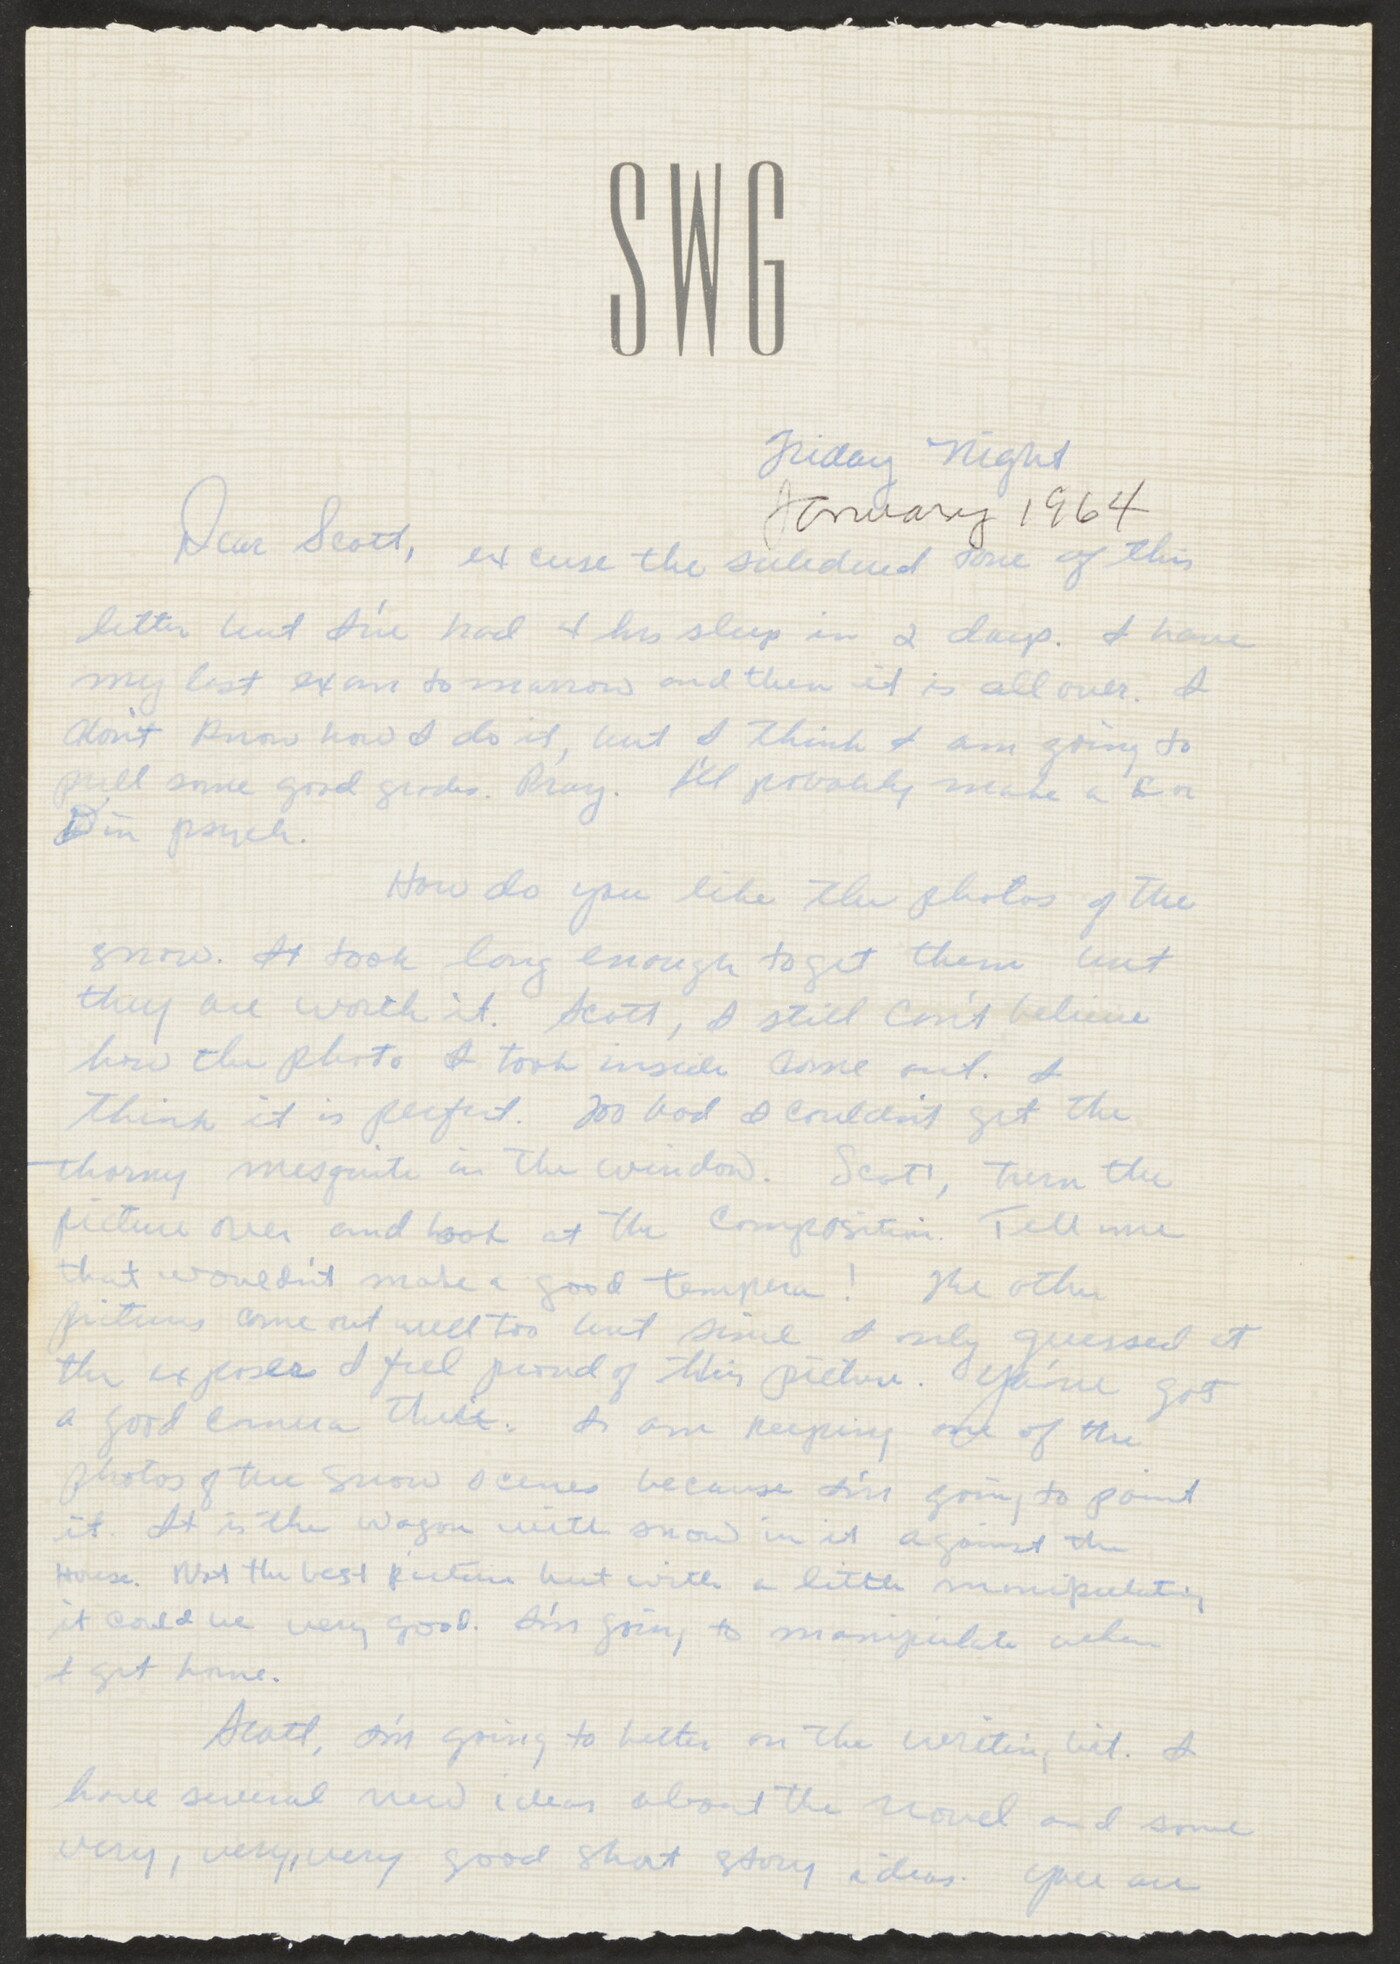 SWG
Friday Night
January 1964
Dear Scott, excuse the subdued tone of this
letter but I've had 4 hrs sleep in 2 days. I have
my last exam tomarrow and then it is all over. I
don't know how I do it, but I think I am going to
pull some good grades. Pray. I'll probably make a C or
D in psych.
How do you like the photos of the
snow. It took long enough to get them but
they are worth it. Scott, I still can't believe
how the photo I took inside came out. I
think it is perfect. Too bad I couldn't get the
thorny mesquite in the window. Scott, turn the
picture over and look at the composition. Tell me
that wouldn't make a good tempera! The other
pictures came out well too but since I only guessed at
the exposer I feel proud of this picture. You've got
a good camera there. I am keeping one of the
photos of the snow scenes because I'm going to paint
it. It is the wagon with snow in it against the
House. Not the best picture but with a little manipulating
it could be very good. I'm going to manipulate when
I get home.
Scott, I'm going to better on the writing bit. I
have several new ideas about the novel and some
very, very, very good short story ideas. You are